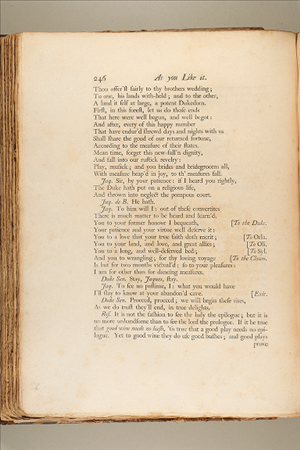 246 As you Like it.
Thou offer'st fairly to thy brothers wedding;
To one, his lands with-held; and to the other,
A land it self at large, a potent Dukedom.
First, in this forest, let us do those ends
That here were well begun, and well begot:
And after, every of this happy number
That have endur'd shrewd days and nights with us
Shall share the good of our returned fortune,
According to the measure of their states.
Mean time, forget this new-fall'n dignity,
And fall into our rustick revelry:
Play, musick; and you brides and bridegrooms all,
With measure heap'd in joy, to th' measures fall.
Jaq. Sir, by your patience: if I heard you rightly,
The Duke hath put on a religious life,
And thrown into neglect the pompous court.
Jaq. de B. He hath.
Jaq. To him will I: out of these convertites
There is much matter to be heard and learn'd.
You to your former honour I bequeath, [To the Duke.
Your patience and your virtue well deserve it:
You to a love that your true faith doth merit; [To Orla.
You to your land, and love, and great allies; [To Oli.
You to a long, and well-deserved bed; [To Syl.
And you to wrangling; for thy loving voyage [To the Clown.
Is but for two months victual'd: so to your pleasures:
I am for other than for dancing measures.
Duke Sen. Stay, Jaques, stay.
Jaq. To see no pastime, I: what you would have
I'll stay to know at your abandon'd cave. [Exit.
Duke Sen. Proceed, proceed; we will begin these rites,
As we do trust they'll end, in true delights.
Ros. It is not the fashion to see the lady the epilogue; but it is
no more unhandsome than to see the lord the prologue. If it be true
that good wine needs no bush, 'tis true that a good play needs no epi-
logue. Yet to good wine they do use good bushes; and good plays
prove